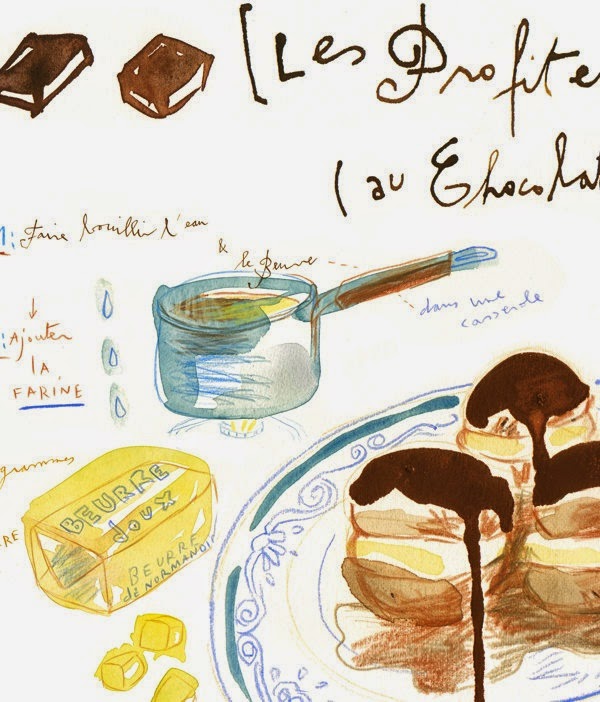 Les Profite
(au Chocolat
1: Faire bouillir l'eau
& le Beurre
dans une
casserole
: Ajouter
la
FARINE
grammes
BEURRE
doux
BEURRE
de NORMANDIE